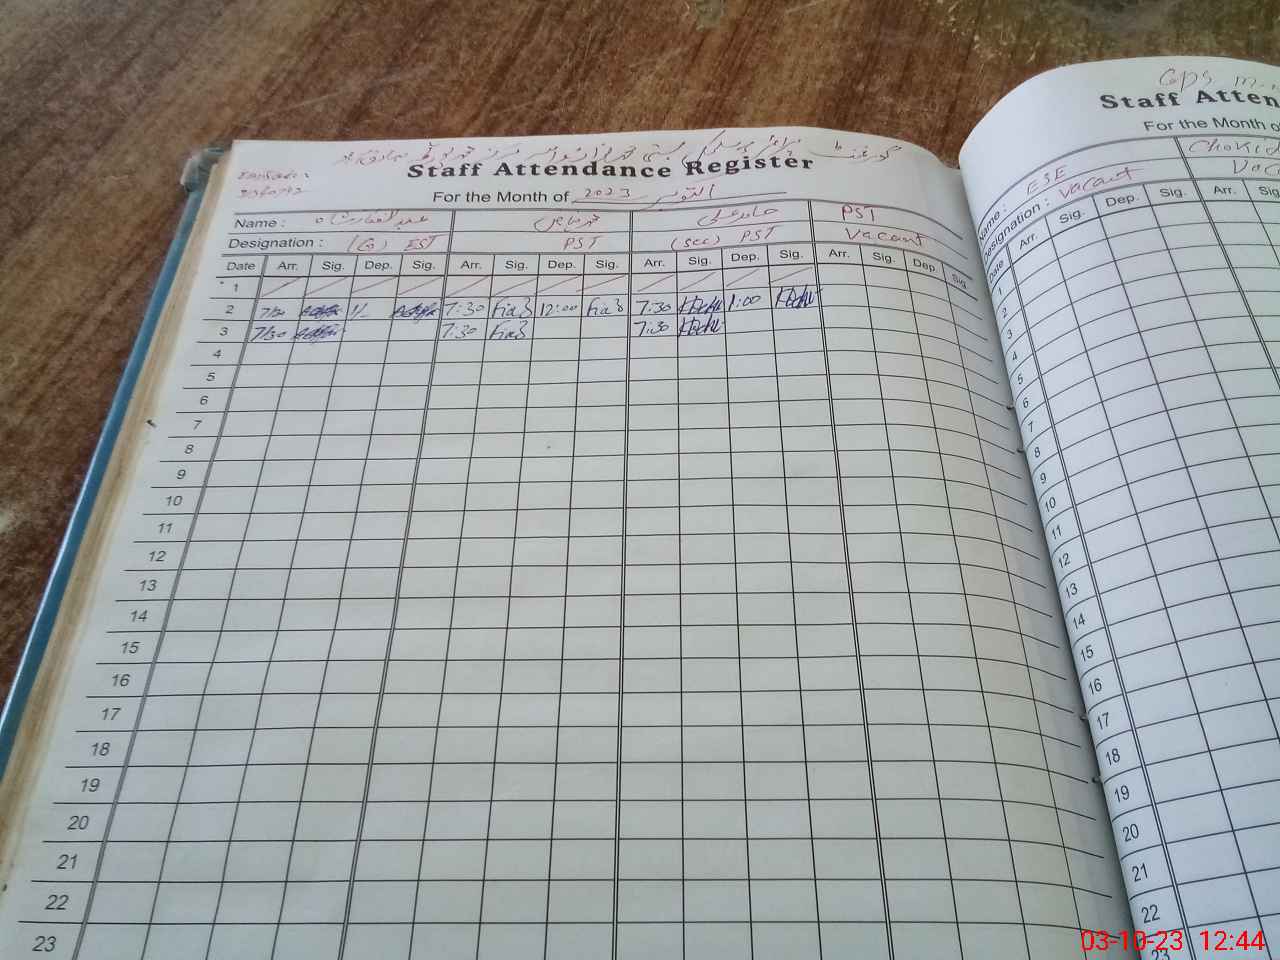 گورنمنٹ
Staff Attendance Register
For the Month of 2023 اکتوبر
Name : عبدالغفار شاہ
حامد علی
PST
Designation : EST
PST
(sec) PST
Vacant
Date Arr. Sig. Dep. Sig. Arr. Sig. Dep. Sig. Arr. Sig. Dep. Sig. Arr. Sig. Dep. Sig.
1
2 7/30 1/- 7:30 12:00 7:30 1:00
3 7/30 7:30 7:30
4
5
6
7
8
9
10
11
12
13
14
15
16
17
18
19
20
21
22
23
GPS
Staff Atten
For the Month of
Name : ESE
Designation : Vacant
Date Arr. Sig. Dep. Sig. Arr. Sig.
1
2
3
4
5
6
7
8
9
10
11
12
13
14
15
16
17
18
19
20
21
22
23
03-10-23 12:44